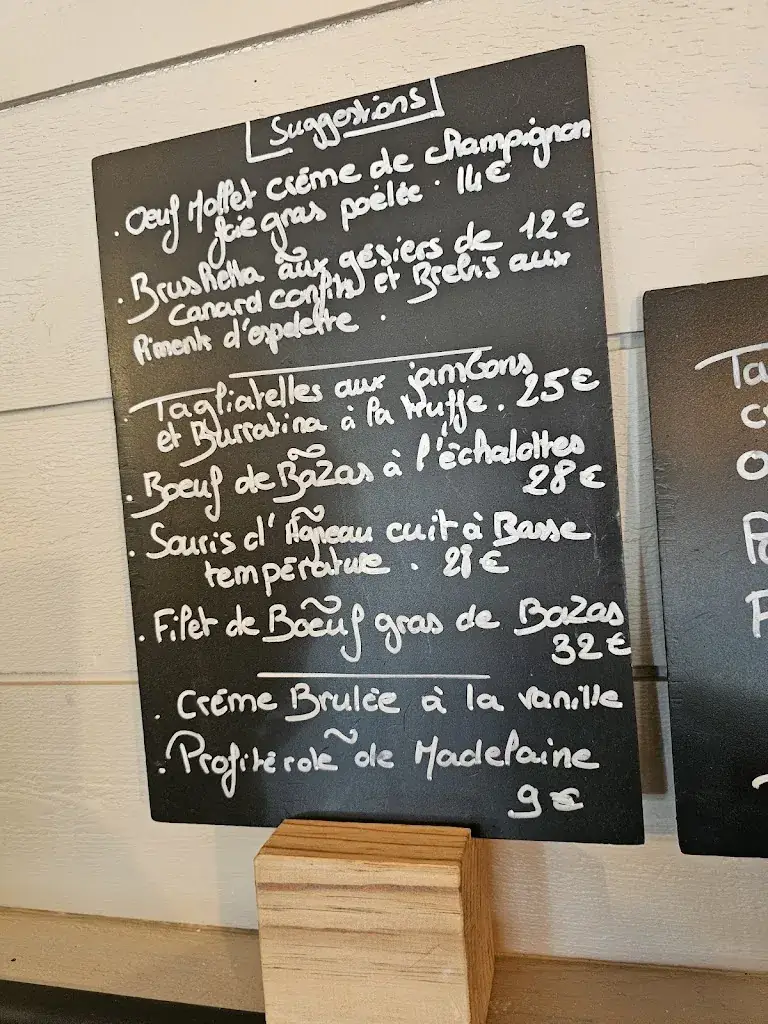 Suggestions
. Oeuf Mollet crème de champignon
foie gras poêlée . 14€
. Brushetta aux gésiers de 12€
canard confits et Brebis aux
Piments d'espelette .
. Tagliatelles aux jambons
et Burratina à la truffe . 25€
. Boeuf de Bazas à l'échalottes
28€
. Souris d'Agneau cuit à Basse
température . 28€
. Filet de Boeuf gras de Bazas
32€
. Crème Brulée à la vanille
. Profiterole de Madelaine
9€
Ta
c